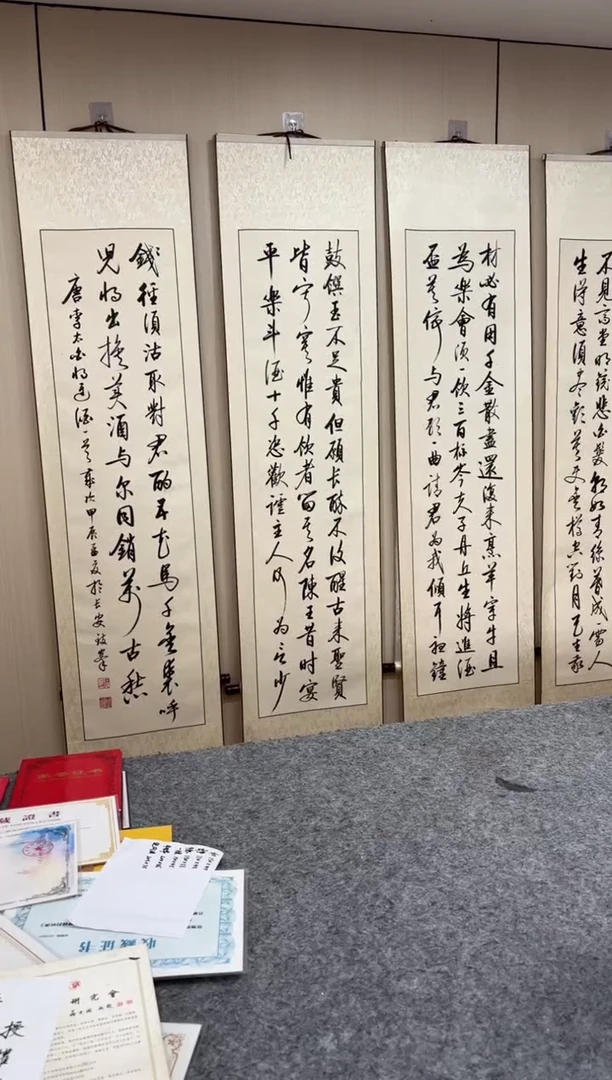 不見高堂明鏡悲白髮朝如青絲暮成雪人
生得意須盡歡莫使金樽空對月天生我
材必有用千金散盡還復来烹羊宰牛且
為樂會須一飲三百杯岑夫子丹丘生將進酒
盃莫停与君歌一曲請君為我傾耳聽鐘
鼓饌玉不足貴但願長醉不復醒古来聖賢
皆寂寞惟有飲者留其名陳王昔時宴
平樂斗酒十千恣歡謔主人何為言少
錢徑須沽取對君酌五花馬千金裘呼
兒將出換美酒与尔同銷萬古愁
唐李太白將進酒一首歲次甲辰孟夏於長安
荣誉证书
證書
收藏证书
研究會
授